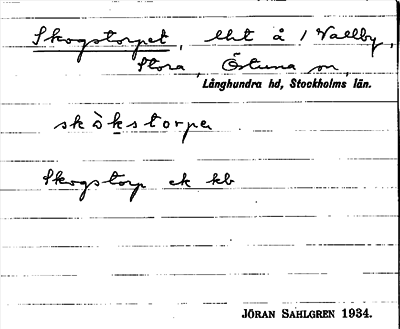 Skogstorpet, lht å / Vallby,
Stora, Östuna sn,
Långhundra hd, Stockholms län.
skò̀kstorpeṭ
Skogstorp ek kb
JÖRAN SAHLGREN 1934.